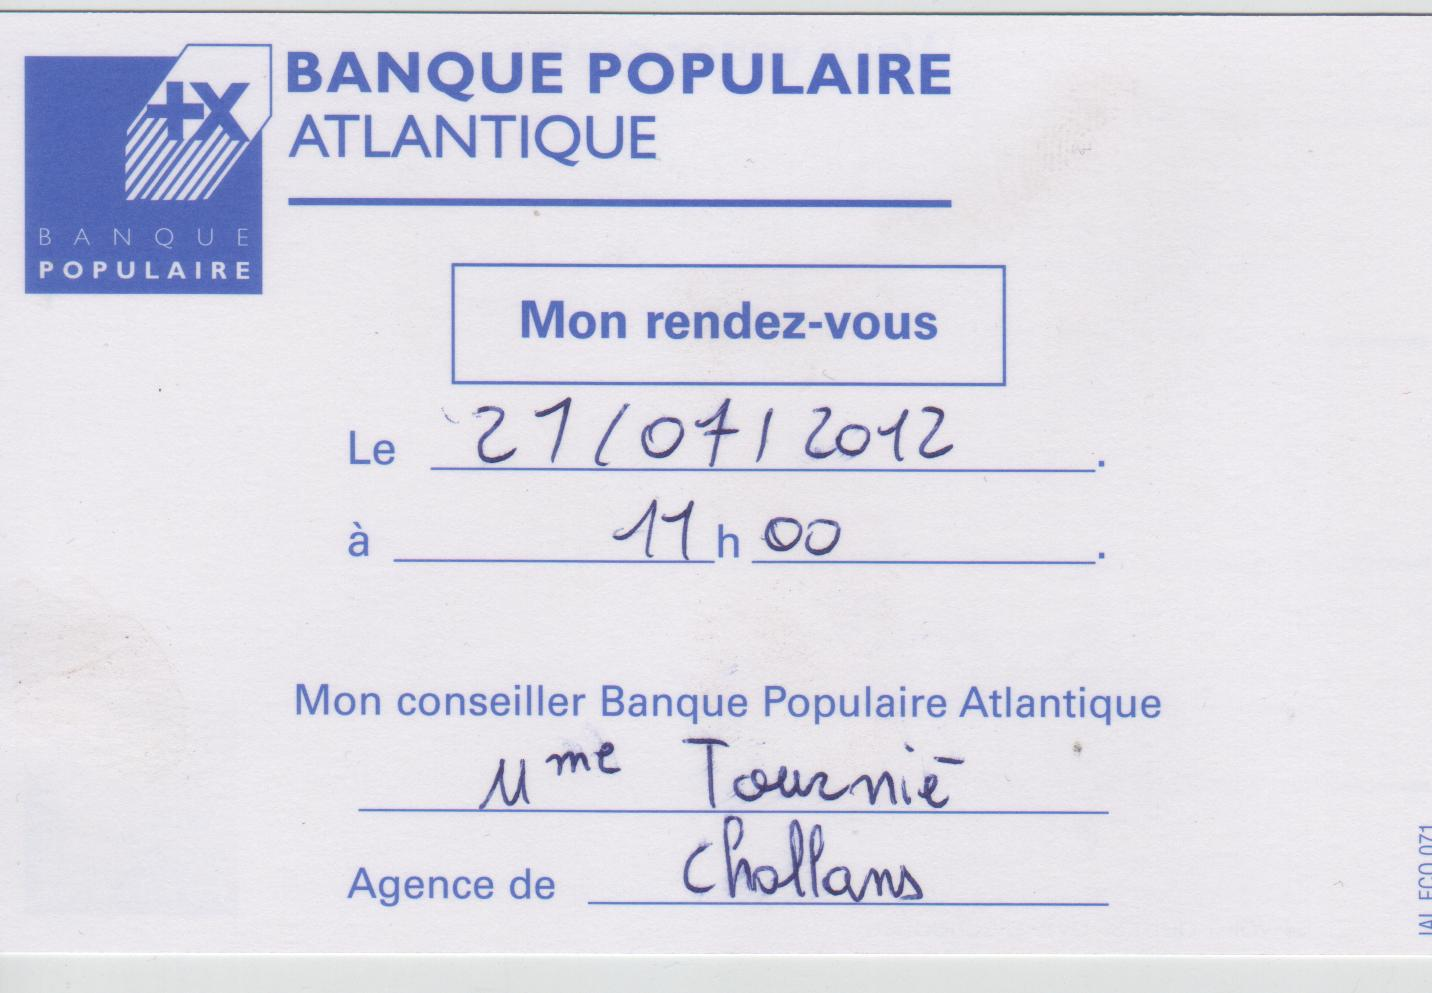 +X
BANQUE
POPULAIRE
BANQUE POPULAIRE
ATLANTIQUE
Mon rendez-vous
Le 21/07/2012.
à 11 h 00.
Mon conseiller Banque Populaire Atlantique
Mme Tournié
Agence de Challans